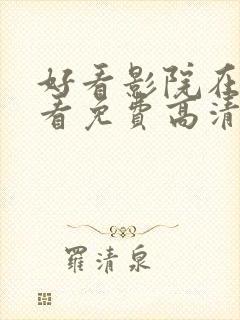 好看影院在
看免费高清
羅清泉